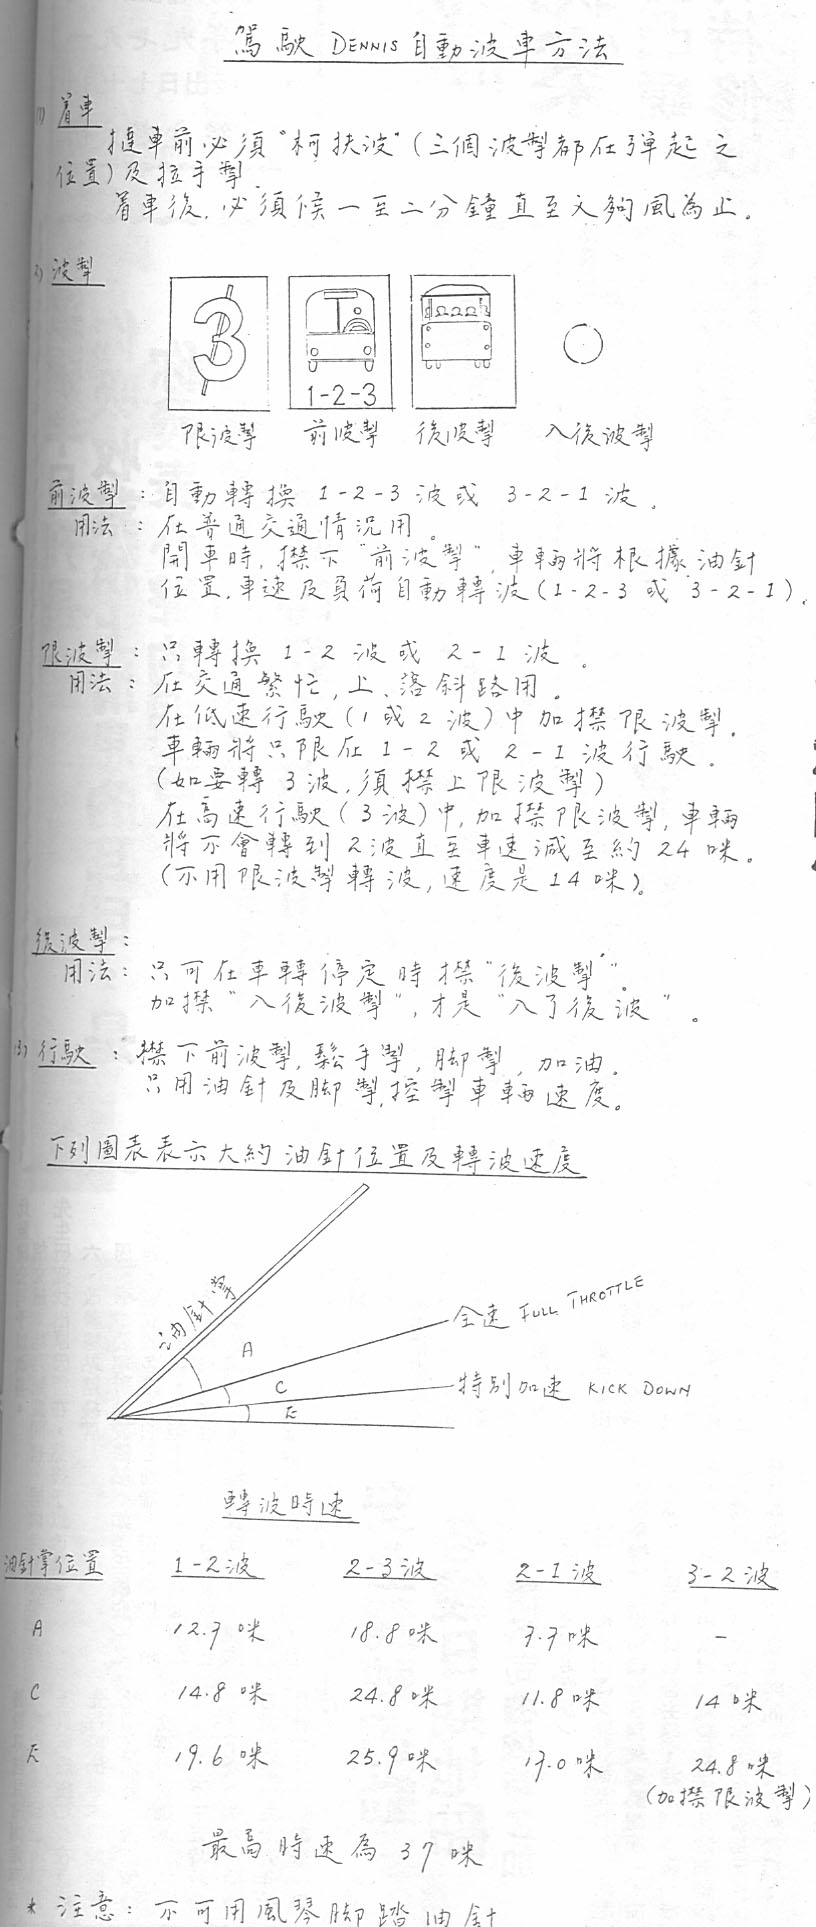 駕駛 DENNIS 自動波車方法
(1) 着車
撻車前必須"柯扶波"(三個波掣都在弹起之
位置)及拉手掣.
着車後,必須候一至二分鐘直至夠風為止.
2) 波掣
3
1-2-3
限波掣 前波掣 後波掣 入後波掣
前波掣 : 自動轉換 1-2-3 波或 3-2-1 波.
用法 : 在普通交通情況用。
開車時,㩒下"前波掣",車輛將根據油針
位置,車速及負荷自動轉波(1-2-3 或 3-2-1).
限波掣 : 只轉換 1-2 波或 2-1 波.
用法 : 在交通繁忙,上、落斜路用。
在低速行駛(1或2波)中加㩒限波掣.
車輛將只限在 1-2 或 2-1 波行駛.
(如要轉 3 波,須㩒上限波掣)
在高速行駛(3波)中,加㩒限波掣,車輛
將不會轉到 2波直至車速減至約 24 咪。
(不用限波掣轉波,速度是14咪)。
後波掣 :
用法 : 只可在車轉停定時㩒"後波掣"。
加㩒"入後波掣",才是"入了後波"。
(3) 行駛 : 㩒下前波掣,鬆手掣,脚掣,加油.
只用油針及脚掣,控掣車輛速度。
下列圖表表示大約油針位置及轉波速度
油針掌
A
全速 FULL THROTTLE
C
特別加速 KICK DOWN
E
轉波時速
油針掌位置 1-2波 2-3波 2-1波 3-2波
A 12.7咪 18.8咪 7.7咪 -
C 14.8咪 24.8咪 11.8咪 14咪
E 19.6咪 25.9咪 17.0咪 24.8咪
(加㩒限波掣)
最高時速為 37 咪
* 注意: 不可用風琴脚踏油針